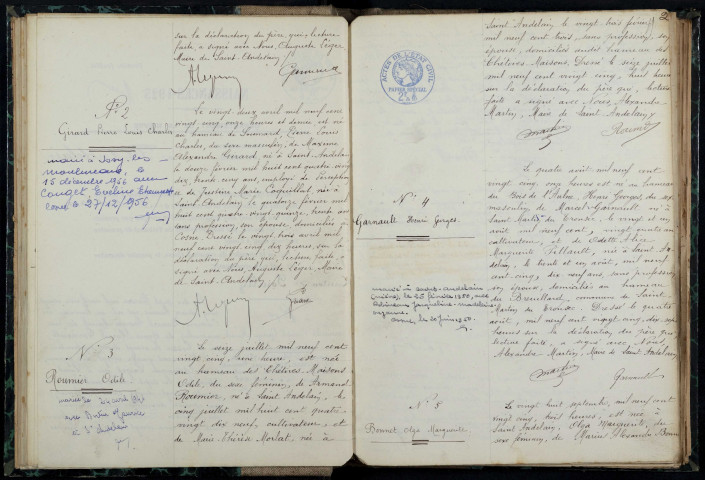 sur la déclaration du père, qui, lecture
faite, a signé avec Nous, Auguste Léger
Maire de Saint-Andelain.
N° 2
Girard Pierre Louis Charles
marié à Issy-les-
moulineaux, le
15 décembre 1956 avec
Evelyne
le 27/12/1956
Le vingt-deux avril mil neuf cent
vingt cinq, onze heures et demie est né
au hameau de Soumard, Pierre Louis
Charles, du sexe masculin, de Maxime
Alexandre Girard, né à Saint-Andelain
le douze février mil huit cent quatre-vingt
dix, trente cinq ans, employé de perception
et de Justine Marie Coquillat, née à
Saint-Andelain, le quatorze février mil
huit cent quatre vingt quinze, trente ans
sans profession, son épouse, domiciliés à
Cosne. Dressé le vingt trois avril mil
neuf cent vingt cinq dix heures, sur la
déclaration du père qui, lecture faite, a
signé avec Nous Auguste Léger Maire
de Saint-Andelain
N° 3
Roumier Odile
Le seize juillet mil neuf cent
vingt cinq, une heure, est née
au hameau des Chétives Maisons
Odile, du sexe féminin, de Armand
Roumier, né à Saint Andelain, le
cinq juillet mil huit cent quatre
vingt dix neuf, cultivateur, et
de Marie Thérèse Morlat, née à
2
ACTES DE L'ÉTAT CIVIL
PAPIER SPÉCIAL
Saint Andelain, le vingt trois février
mil neuf cent trois, sans profession, son
épouse, domiciliés audit hameau des
Chétives Maisons. Dressé le seize juillet
mil neuf cent vingt cinq, huit heures
sur la déclaration du père qui, lecture
faite a signé avec Nous, Alexandre
Martin, Maire de Saint Andelain
N° 4
Garnault Henri Georges
marié à Saint-Andelain
(Nièvre), le 25 février 1950, avec
Jacqueline-Madeleine-
Suzanne
Le quatre août mil neuf cent
vingt cinq, onze heures est né au hameau
du Bois de l'Aulne Henri Georges, du sexe
masculin, de Marcel Garnault, né à
Saint Martin du Tronsec, le vingt et un
août mil neuf cent, vingt quatre ans
cultivateur, et de Odette Alice
Marguerite Pellault, née à Saint An-
delain, le trente et un août, mil neuf
cent cinq, dix neuf ans, sans profession
son épouse, domiciliés au hameau
du Breuillard, commune de Saint
Martin du Tronsec. Dressé le quatre
août, mil neuf cent vingt cinq, dix sept
heures sur la déclaration du père qui
lecture faite, a signé avec, Nous,
Alexandre Martin, Maire de Saint Andelain
Martin Garnault
N° 5
Bonnet Olga Marguerite
Le vingt huit septembre, mil neuf cent
vingt cinq, huit heures, est née à
Saint Andelain, Olga Marguerite, du
sexe féminin, de Marie Alexandre Bonnet